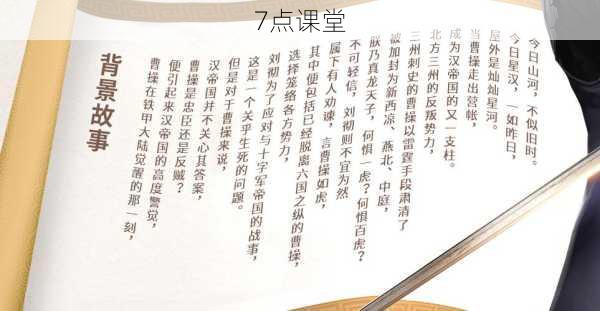 7点课堂
背景故事
曹操在铁甲大陆觉醒的那一刻,
便引起来汉帝国的高度警觉,
曹操是忠臣还是反贼?
汉帝国并不关心其答案,
但是对于曹操来说,
这是一个关乎生死的问题。
刘彻为了应对与十字军帝国的战事,
选择笼络各方势力,
其中便包括已经脱离六国之纵的曹操,
属下有人劝谏,言曹操如虎,
不可轻信,刘彻则不宜为然
朕乃真龙天子,何惧一虎?何惧百虎?
被加封为新西凉、燕北、中庭,
三州刺史的曹操以雷霆手段肃清了
北方三州的反叛势力,
成为汉帝国的又一支柱。
当曹操走出营帐,
屋外是灿灿星河。
今日星汉,一如昨日,
今日山河,不似旧时。